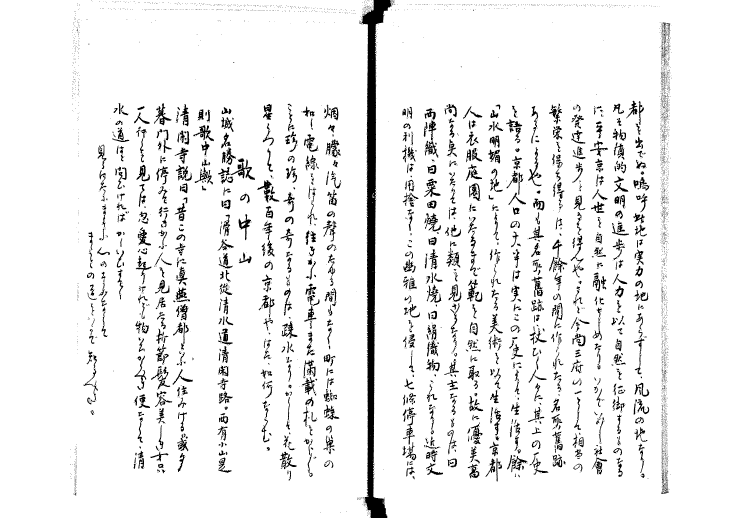 都を出でぬ。嗚呼此地は実力の地にあらずして、風流の地なり。
凡そ物質的文明の進歩は人力を以て自然を征御するものなる
に、平安京は人世を自然に融化せしめたる
の発達進歩を見るを得んや。されど今尚三府の一として相当の
繁栄を得るは、千余年の間に作られたる名所旧跡
あるによるや。而も其名所旧跡は杖ひく人々に其上の歴史
を語る。京都人口の大半は実にこの歴史によりて、生活す。
「山水明媚の地」によりて、作られたる美術を以て生活す。京都
人は衣服庭園にいたるまで範を自然に取る故に優美高
尚なる点にいたりては、他に類を見ざるなり。其主なるものは、曰
西陣織、曰粟田焼、曰清水焼、曰絹織物、これなり。近時文
明の利機は用捨なくこの幽雅の地を侵して、七條停車場には、
烟々朦々汽笛の声のたゆる間もなく、町には蜘蛛の巣の
如く電線をはられ、往きかふ電車はまた満載の札をかゝぐ。
ことに珍の珍、奇の奇なるものは疎水なり。かくして花散り
星うつりて、数百年後の京都や、はた如何ならむ。
歌の中山
山城名勝誌に曰「清谷道北従清水道清閑寺路。西有小山是
則歌中山歟」
清閑寺説曰「昔この寺に真燕僧都といふ人住みける或夕
暮門外に停みて行きかふ人を見居たる折節髪容美しき女只
一人行くを見ては、忽愛心起りけれど物いひかくべき便なくて、清
水の道はと問ひければ
見るにだにまよふ心のはかなくて
まことの道をいかで知るべき。